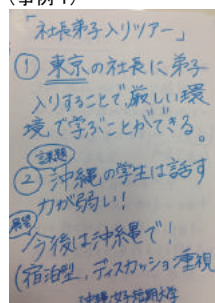 (事例1)
「社長弟子入りツアー」
① 東京の社長に弟子
入りすることで、厳しい環
境で学ぶことができる。
課題
② 沖縄の学生は話す
力が弱い!
展望
今後は沖縄で!
(宿泊型、ディスカッション重視
沖縄女子短期大学